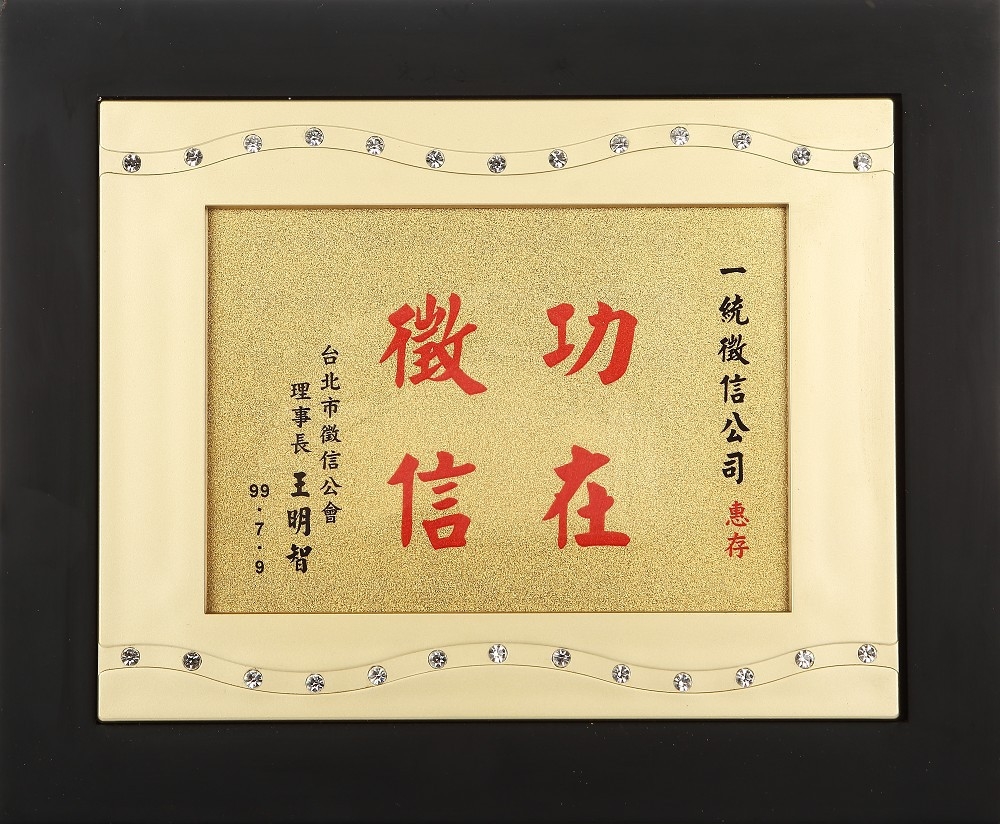 一統徵信公司 惠存
功在
徵信
台北市徵信公會
理事長 王明智
99.7.9